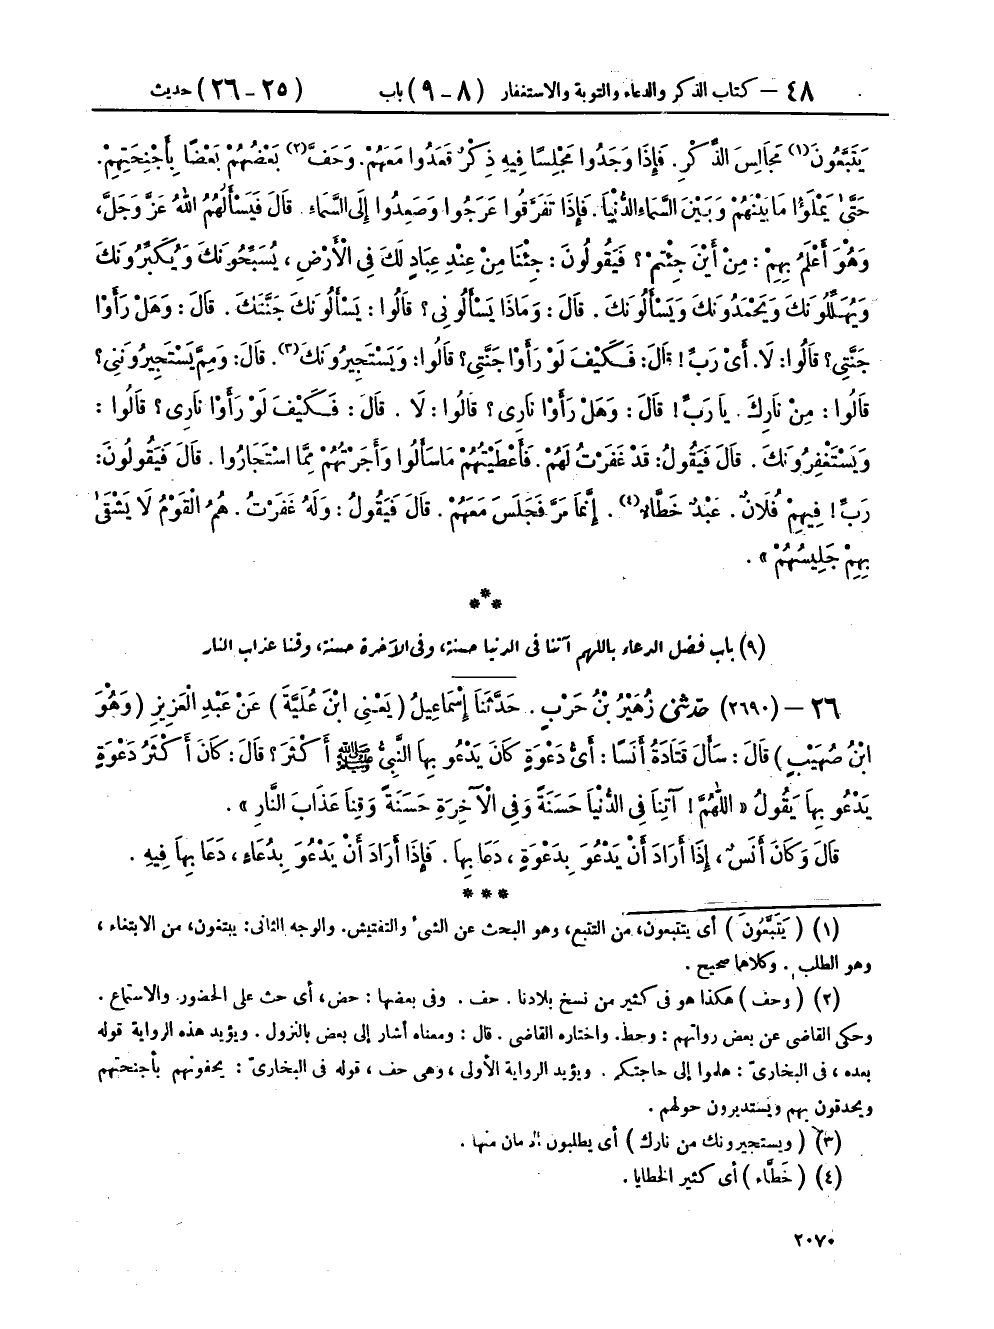 ٤٨ – كتاب الذكر والدعاء والتوبة والاستغفار (٨-٩) باب (٢٥-٢٦) حديث
يَتَبَّعُونَ(١) مَجَالِسَ الذِّكْرِ. فَإِذَا وَجَدُوا مَجْلِسًا فِيهِ ذِكْرٌ قَعَدُوا مَعَهُمْ. وَحَفَّ(٢) بَعْضُهُمْ بَعْضًا بِأَجْنِحَتِهِمْ.
حَتَّىٰ يَمْلَؤُا مَا بَيْنَهُمْ وَبَيْنَ السَّمَاءِ الدُّنْيَا. فَإِذَا تَفَرَّقُوا عَرَجُوا وَصَعِدُوا إِلَى السَّمَاءِ. قَالَ فَيَسْأَلُهُمُ اللهُ عَزَّ وَجَلَّ،
وَهُوَ أَعْلَمُ بِهِمْ: مِنْ أَيْنَ جِئْتُمْ؟ فَيَقُولُونَ: جِئْنَا مِنْ عِنْدِ عِبَادٍ لَكَ فِي الْأَرْضِ، يُسَبِّحُونَكَ وَيُكَبِّرُونَكَ
وَيُهَلِّلُونَكَ وَيَحْمَدُونَكَ وَيَسْأَلُونَكَ. قَالَ: وَمَاذَا يَسْأَلُونِي؟ قَالُوا: يَسْأَلُونَكَ جَنَّتَكَ. قَالَ: وَهَلْ رَأَوْا
جَنَّتِي؟ قَالُوا: لَا. أَيْ رَبِّ! قَالَ: فَكَيْفَ لَوْ رَأَوْا جَنَّتِي؟ قَالُوا: وَيَسْتَجِيرُونَكَ(٣). قَالَ: وَمِمَّ يَسْتَجِيرُونَنِي؟
قَالُوا: مِنْ نَارِكَ. يَا رَبِّ! قَالَ: وَهَلْ رَأَوْا نَارِي؟ قَالُوا: لَا. قَالَ: فَكَيْفَ لَوْ رَأَوْا نَارِي؟ قَالُوا:
وَيَسْتَغْفِرُونَكَ. قَالَ فَيَقُولُ: قَدْ غَفَرْتُ لَهُمْ. فَأَعْطَيْتُهُمْ مَا سَأَلُوا وَأَجَرْتُهُمْ مِمَّا اسْتَجَارُوا. قَالَ فَيَقُولُونَ:
رَبِّ! فِيهِمْ فُلَانٌ. عَبْدٌ خَطَّاءٌ(٤). إِنَّمَا مَرَّ فَجَلَسَ مَعَهُمْ. قَالَ فَيَقُولُ: وَلَهُ غَفَرْتُ. هُمُ الْقَوْمُ لَا يَشْقَىٰ
بِهِمْ جَلِيسُهُمْ».
***
(٩) باب فضل الدعاء باللهم آتنا في الدنيا حسنة، وفي الآخرة حسنة، وقنا عذاب النار
٢٦ – (٢٦٩٠) حَدَّثَنِي زُهَيْرُ بْنُ حَرْبٍ. حَدَّثَنَا إِسْمَاعِيلُ (يَعْنِي ابْنَ عُلَيَّةَ) عَنْ عَبْدِ الْعَزِيزِ (وَهُوَ
ابْنُ صُهَيْبٍ) قَالَ: سَأَلَ قَتَادَةُ أَنَسًا: أَيُّ دَعْوَةٍ كَانَ يَدْعُو بِهَا النَّبِيُّ ﷺ أَكْثَرَ؟ قَالَ: كَانَ أَكْثَرُ دَعْوَةٍ
يَدْعُو بِهَا يَقُولُ «اللَّهُمَّ! آتِنَا فِي الدُّنْيَا حَسَنَةً وَفِي الْآخِرَةِ حَسَنَةً وَقِنَا عَذَابَ النَّارِ».
قَالَ وَكَانَ أَنَسٌ، إِذَا أَرَادَ أَنْ يَدْعُوَ بِدَعْوَةٍ، دَعَا بِهَا. فَإِذَا أَرَادَ أَنْ يَدْعُوَ بِدُعَاءٍ، دَعَا بِهَا فِيهِ.
***
(١) (يَتَبَّعُونَ) أى يتتبعون، من التتبع، وهو البحث عن الشىء والتفتيش. والوجه الثانى: يبتغون، من الابتغاء،
وهو الطلب. وكلاهما صحيح.
(٢) (وحف) هكذا هو فى كثير من نسخ بلادنا. حف. وفى بعضها: حض، أى حث على الحضور والاستماع.
وحكى القاضى عن بعض رواتهم: وحط. واختاره القاضى. قال: ومعناه أشار إلى بعض بالنزول. ويؤيد هذه الرواية قوله
بعده، فى البخارىّ: هلموا إلى حاجتكم. ويؤيد الرواية الأولى، وهى حف، قوله فى البخارىّ: يحفونهم بأجنحتهم
ويحدقون بهم ويستديرون حولهم.
(٣) (ويستجيرونك من نارك) أى يطلبون الأمان منها.
(٤) (خَطَّاء) أى كثير الخطايا.
٢٠٧٠